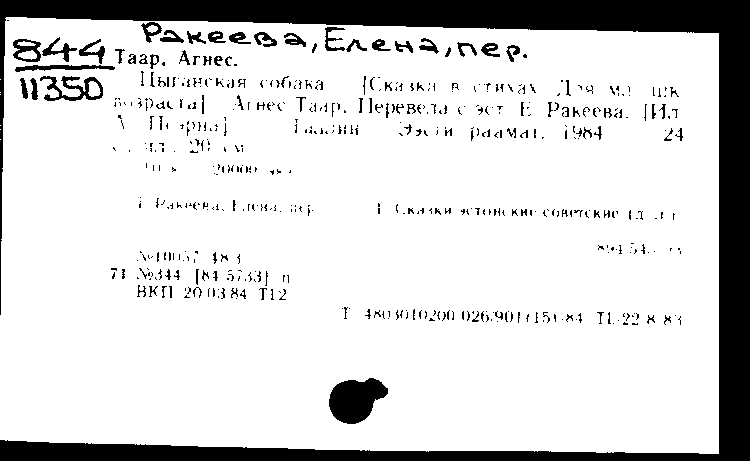 Ракеева, Елена, пер.
844
11350
Таар, Агнес.
Цыганская собака [Сказка в стихах Для мл шк
возраста] Агнес Таар, Перевела с эст Е Ракеева. [Ил
Таллин Ээсти раамат, 1984 24
ил 20 см
20000
1 Ракеева, Елена, пер 1 Сказки эстонские советские
№10057 483
71 №344 [84-5733] п
ВКП 20 03 84 Т12
Т 4803010200-026/901(15)-84 ТL-22-8-83